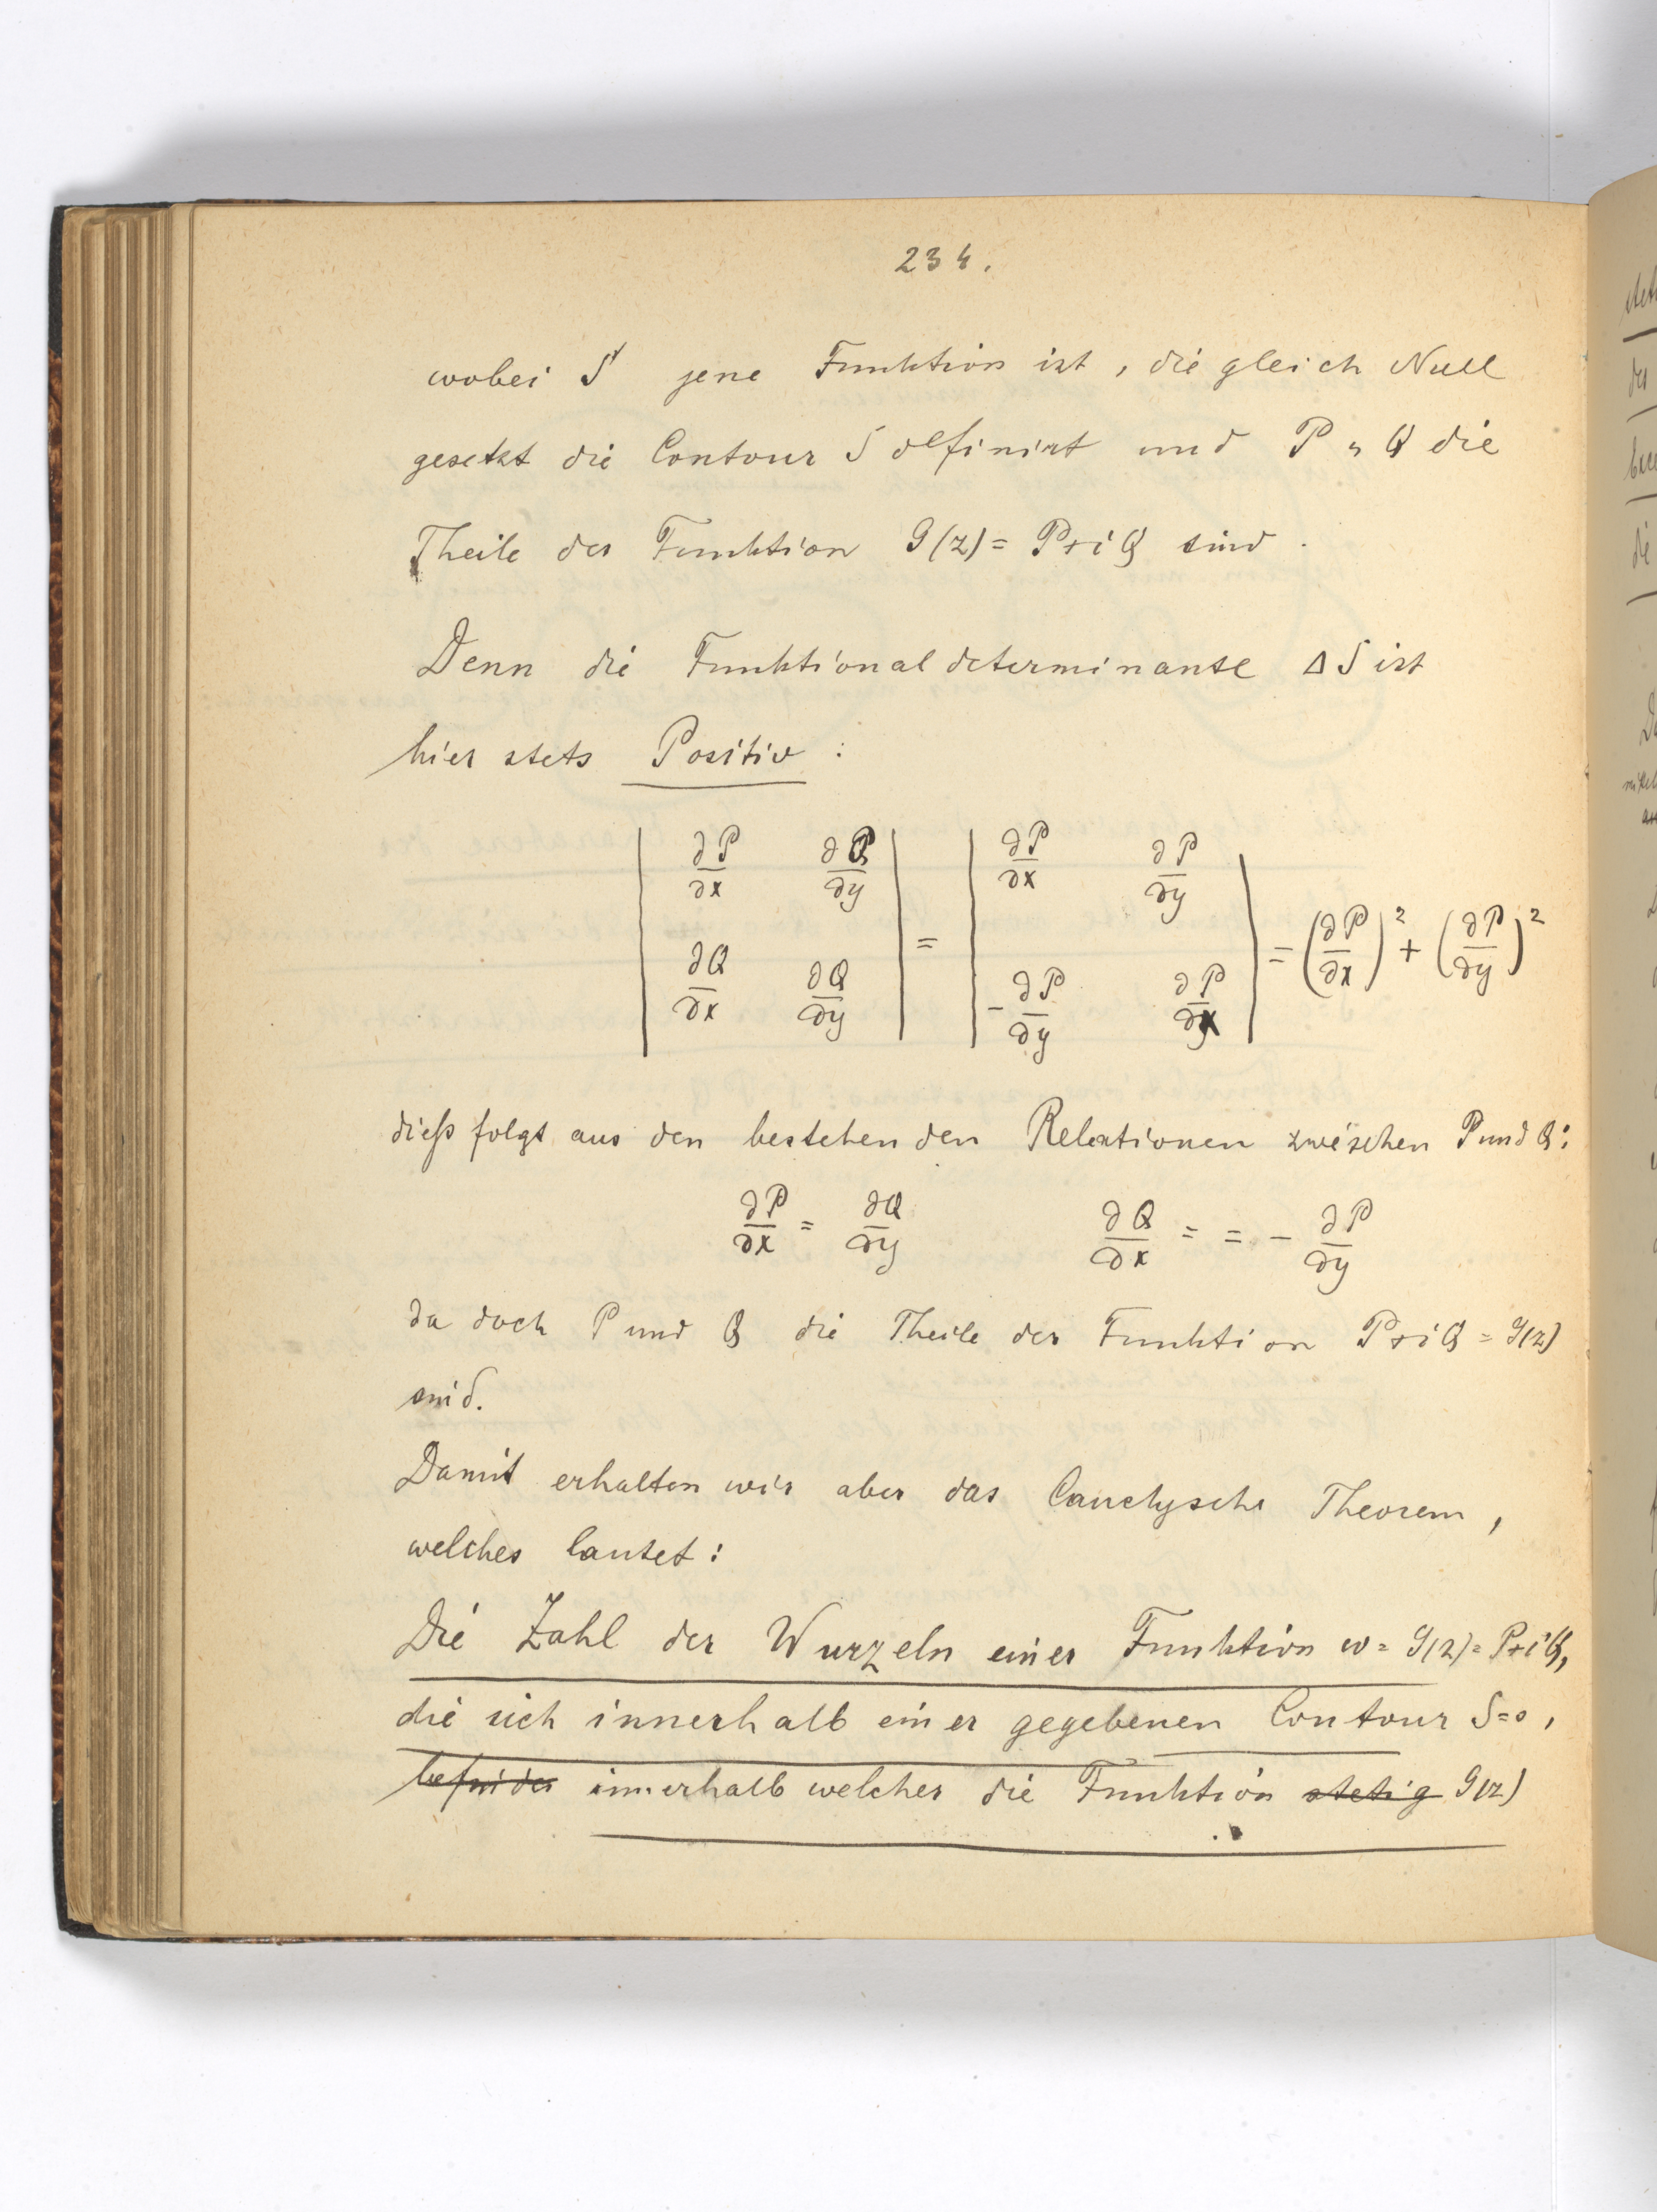 234.
wobei S jene Funktion ist, die gleich Null
gesetzt die Contour S definirt und P u Q die
Theile der Funktion G(z) = P+iQ sind.
Denn die Funktionaldeterminante ΔS ist
hier stets Positiv:
| ∂P/∂x ∂P/∂y ; ∂Q/∂x ∂Q/∂y | = | ∂P/∂x ∂P/∂y ; -∂P/∂y ∂P/∂x | = (∂P/∂x)² + (∂P/∂y)²
dieß folgt aus den bestehenden Relationen zwischen P und Q:
∂P/∂x = ∂Q/∂y ∂Q/∂x = = - ∂P/∂y
da doch P und Q die Theile der Funktion P+iQ = G(z)
sind.
Damit erhalten wir aber das Cauchysche Theorem,
welches lautet:
Die Zahl der Wurzeln einer Funktion w = G(z) = P+iQ,
die sich innerhalb einer gegebenen Contour S=0,
befindet innerhalb welcher die Funktion stetig G(z)